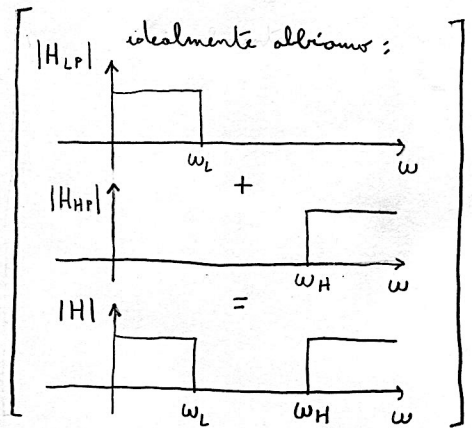 idealmente abbiamo:
|H_LP|
ω_L
ω
+
|H_HP|
ω_H
ω
=
|H|
ω_L
ω_H
ω